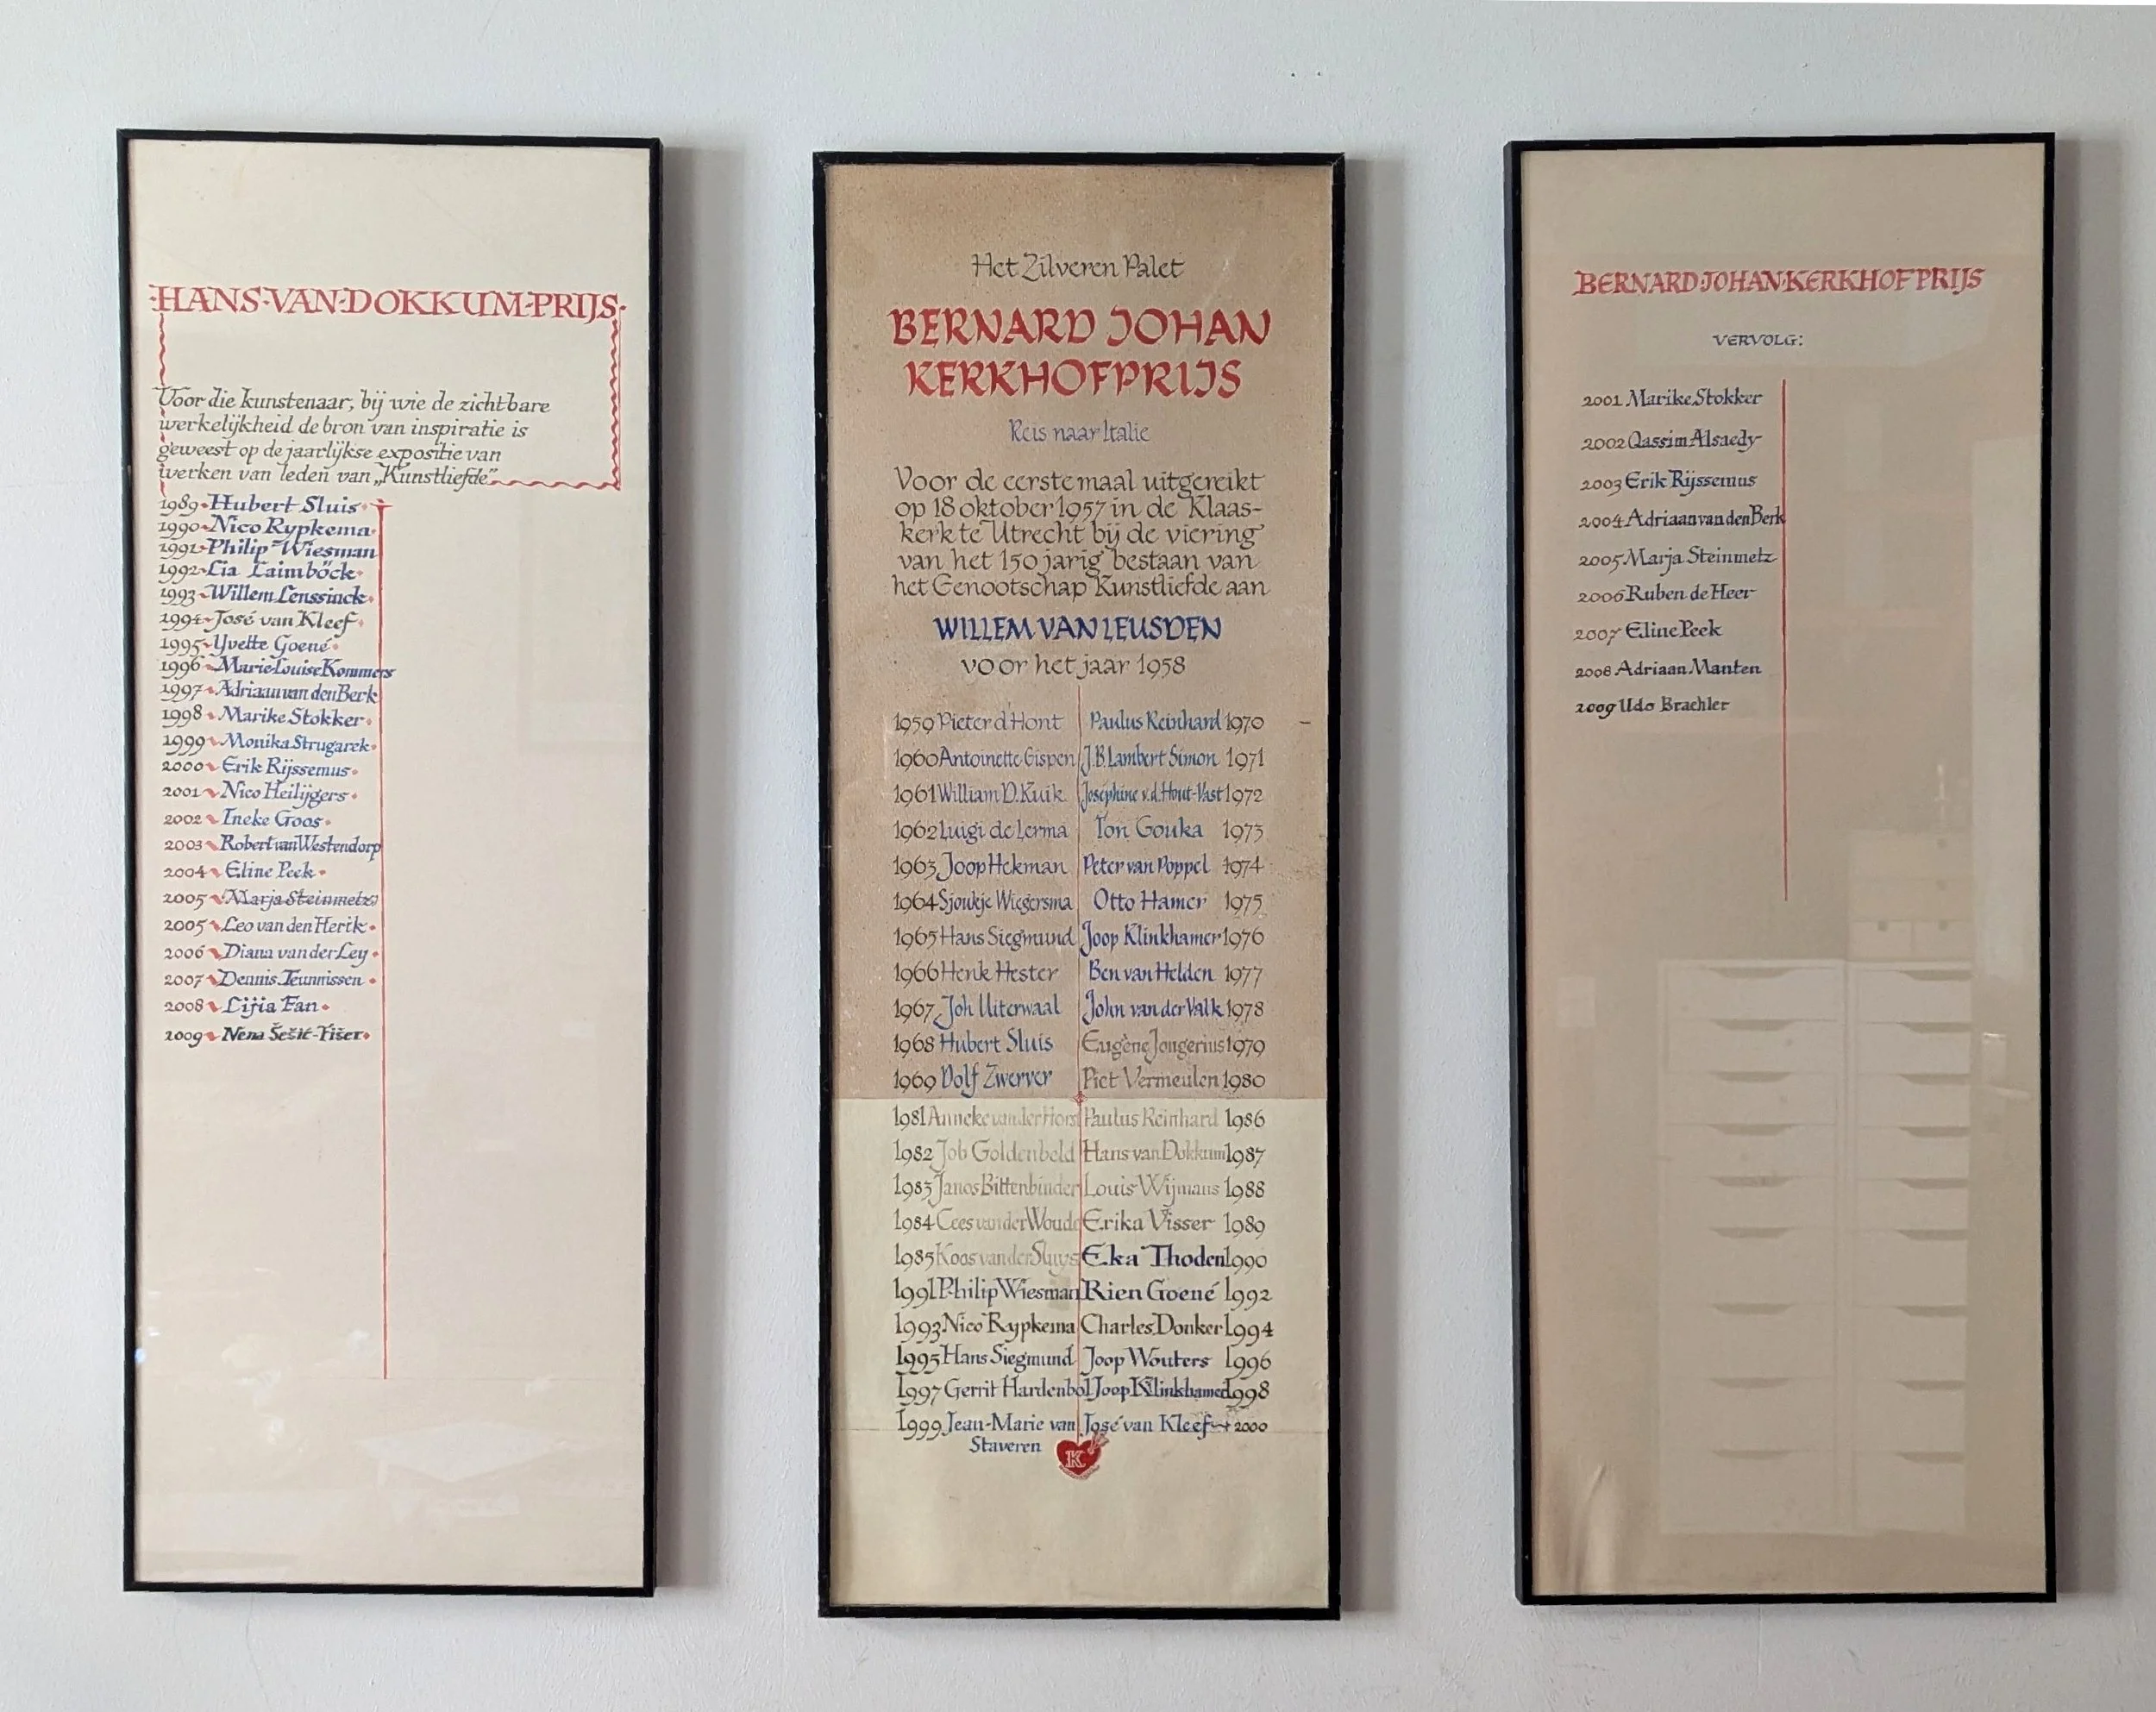 HANS·VAN·DOKKUM·PRIJS·
Voor die kunstenaar, bij wie de zichtbare
werkelijkheid de bron van inspiratie is
geweest op de jaarlijkse expositie van
werken van leden van „Kunstliefde”
1989 Hubert Sluis
1990 Nico Rypkema
1991 Philip Wiesman
1992 Lia Laimböck
1993 Willem Lenssinck
1994 José van Kleef
1995 Yvette Goené
1996 Marie-Louise Kommers
1997 Adriaan van den Berk
1998 Marike Stokker
1999 Monika Strugarek
2000 Erik Rijssemus
2001 Nico Heilijgers
2002 Ineke Goos
2003 Robert van Westendorp
2004 Eline Peek
2005 Marja Steinmetz
2005 Leo van den Hertk
2006 Diana van der Ley
2007 Dennis Teunnissen
2008 Lijia Fan
2009 Nena Šešić-Fišer
Het Zilveren Palet
BERNARD JOHAN
KERKHOFPRIJS
Reis naar Italie
Voor de eerstemaal uitgereikt
op 18 oktober 1957 in de Klaas-
kerk te Utrecht bij de viering
van het 150 jarig bestaan van
het Genootschap Kunstliefde aan
WILLEM VAN LEUSDEN
voor het jaar 1958
1959 Pieter d'Hont Paulus Reinhard 1970
1960 Antoinette Gispen J.B. Lambert Simon 1971
1961 William D. Kuik Josephine v.d. Hout-Vast 1972
1962 Luigi de Lerma Ton Gouka 1973
1963 Joop Hekman Peter van Poppel 1974
1964 Sjoukje Wiegersma Otto Hamer 1975
1965 Hans Siegmund Joop Klinkhamer 1976
1966 Henk Hester Ben van Helden 1977
1967 Joh Uiterwaal John van der Valk 1978
1968 Hubert Sluis Eugène Jongerius 1979
1969 Dolf Zwerver Piet Vermeulen 1980
1981 Anneke van der Horst Paulus Reinhard 1986
1982 Job Goldenbeld Hans van Dokkum 1987
1983 Janos Bittenbinder Louis Wijmans 1988
1984 Cees van der Woude Erika Visser 1989
1985 Koos van der Sluys Eka Thoden 1990
1991 Philip Wiesman Rien Goené 1992
1993 Nico Rypkema Charles Donker 1994
1995 Hans Siegmund Joop Wouters 1996
1997 Gerrit Hardenbol Joop Klinkhamer 1998
1999 Jean-Marie van José van Kleef 2000
Staveren
K
BERNARD·JOHAN·KERKHOF PRIJS
VERVOLG:
2001 Marike Stokker
2002 Qassim Alsaedy
2003 Erik Rijssemus
2004 Adriaan van den Berk
2005 Marja Steinmetz
2006 Ruben de Heer
2007 Eline Peek
2008 Adriaan Manten
2009 Udo Braehler